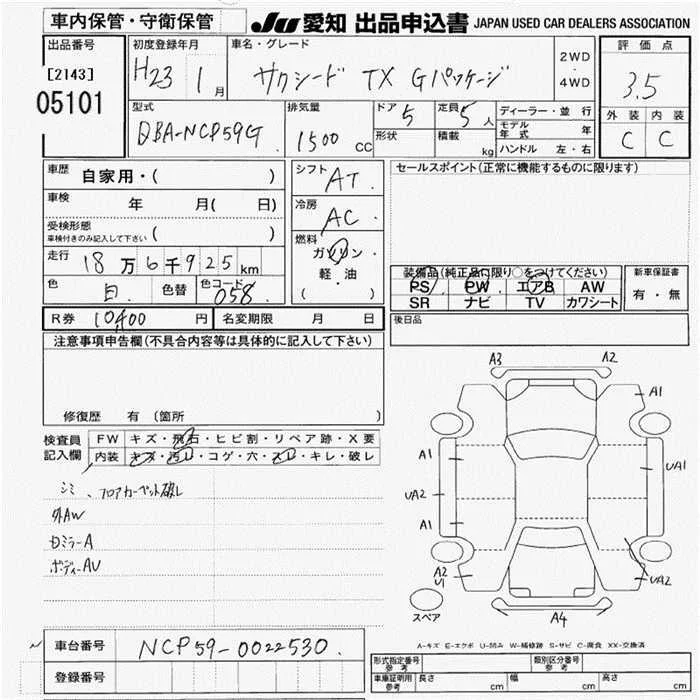 車内保管・守衛保管 JU 愛知 出品申込書 JAPAN USED CAR DEALERS ASSOCIATION
出品番号
[2143]
05101
初度登録年月
H23 1 月
車名・グレード
サクシード TX Gパッケージ
2WD
4WD
評価点
3.5
外装 内装
C C
型式
DBA-NCP59G
排気量
1500 cc
ドア 5
形状
定員 5 人
積載 kg
ディーラー・並行
モデル年式 年
ハンドル 左・右
車歴 自家用・( )
車検 年 月( 日)
受検形態
車検付きのみ記入して下さい ( )
走行 18万6千925km
色 白 色替 色コード 058
シフト AT
冷房 AC
燃料
ガソリン・
軽・油
( )
セールスポイント(正常に機能するものに限ります)
装備品(純正品に限り○をつけてください)
PS PW エアB AW
SR ナビ TV カワシート
新車保証書
有・無
R券 10,400 円 名変期限 月 日
後日品
注意事項申告欄(不具合内容等は具体的に記入して下さい)
修復歴 有 (箇所 )
検査員
記入欄
FW キズ・飛石・ヒビ割・リペア跡・X要
内装 キズ・汚レ・コゲ・穴・スレ・キレ・破レ
シミ、フロアカーペット破レ
外AW
Dミラー A
ボディー AU
A3 A2
A1
A1
UA1
UA2
A1
A2
U1
UA2
A4
スペア
A-キズ E-エクボ U-凹み W-補修跡 S-サビ C-腐食 XX-交換済
車台番号 NCP59-0022530
登録番号
形式指定番号
参考
類別区分番号
参考
車庫証明用
参考
長さ cm 幅 cm 高さ cm